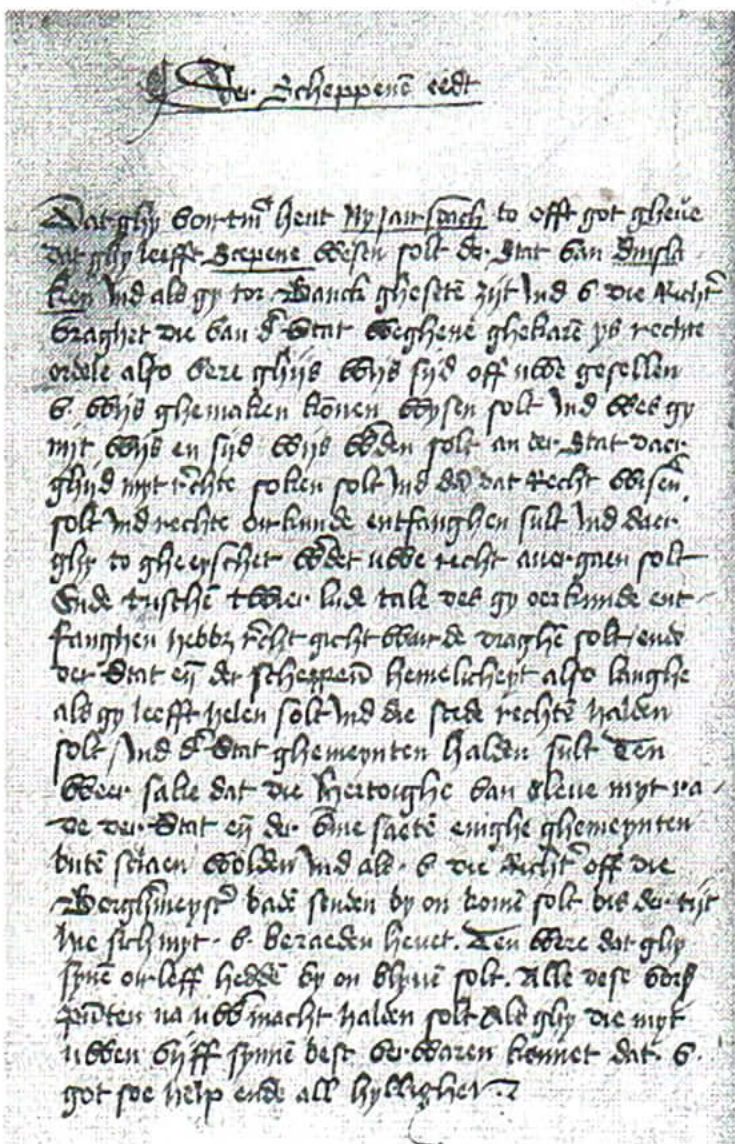 Der Scheppenē eedt
Dat ghy vortm̄ hent Ny jair spāch to offt got gheue
dat ghy leefft Scepene wesen solt der Stat van Dinsla
ken Ind als gy tor Banck gheseten zijt Ind v die Richt
vraghet die van d Stat weghene ghekarē ys rechte
ordele also vere ghijs wijs sijd off uwe gesellen
v. wijs ghemaken konen wysen solt Ind wes gy
nijt wijs en sijd wijs wden solt an der Stat daer
ghijd myt rechte soken solt Ind dat Recht wisen
solt Ind rechte oirkunde entfanghen sult Ind daer
ghy to gheeyschet wdet uwe recht auer gaen solt
Ende tuschē twier lude tale des gy oerkunde ent
fanghen hebbt recht gicht draghē solt ende
der Stat eñ der scheppen hemelicheyt also langhe
als gy leefft helen solt Ind die stede rechtē halden
solt Ind d Stat ghemeynten halden sult Ten
weer sake dat die Hertoighe van Cleue myt ra
de der Stat eñ der enighe ghemeynten
butē slaen wolden Ind als v die Richt off die
Berghmeyst badē senden by on komē solt bis der tijt
hie sich myt v. beraeden heuet. Ten were dat ghy
synē oirleff heddē by on blyuē solt. Alle dese vors
pūten na uwe macht halden solt Als ghy die myt
uwen vijff synnē best verwaren kennet dat v.
got soe help ende all hyllighen